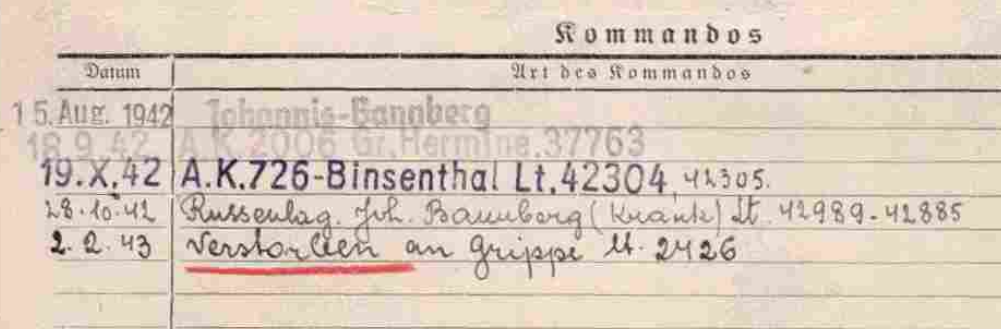 Kommandos
Datum Art des Kommandos
15. Aug. 1942 Johannis-Bannberg
18.9.42 A.K.2006 Gr.Hermine.37763
19.X.42 A.K.726-Binsenthal Lt.42304, 42305.
28.10.42 Russenlag. Joh. Bannberg (krank) lt. 42989-42885
2.2.43 Verstorben an Grippe lt. 2426